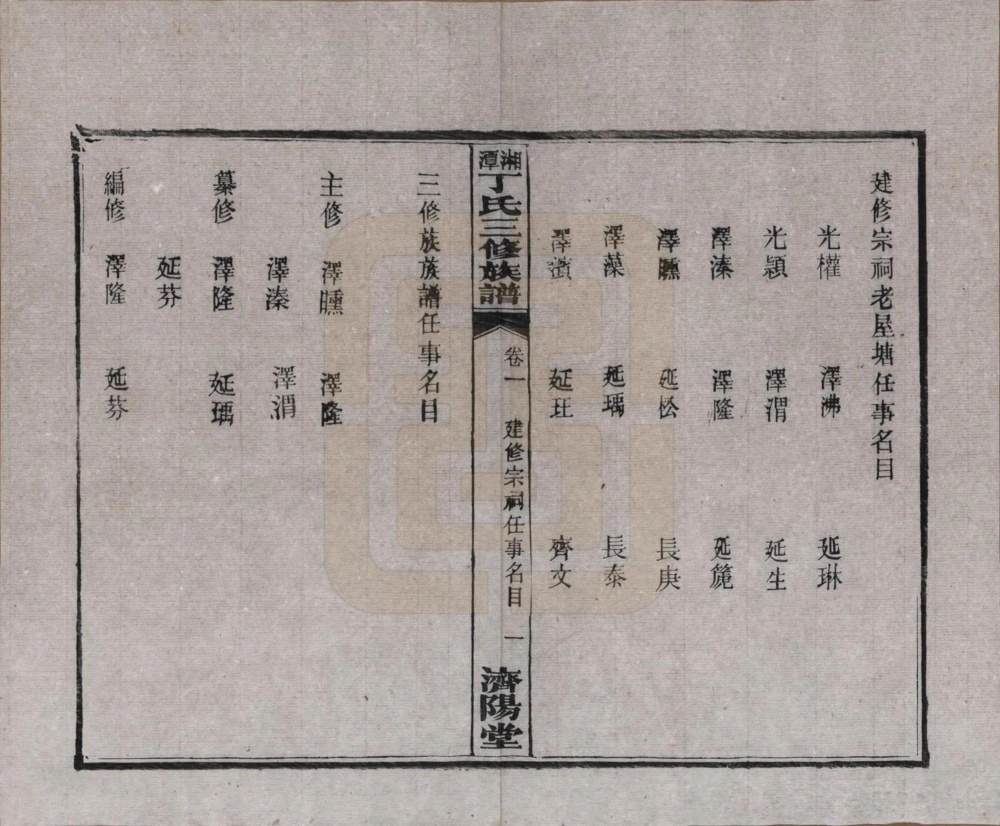 建修宗祠老屋塘任事名目
光權 澤沸 延琳
光穎 澤渭 延生
澤溱 澤隆 延箎
澤臐 延松 長庚
澤藻 延瑀 長泰
澤濱 延玨 齊文
湘潭丁氏三修族譜 卷一 建修宗祠任事名目 一 濟陽堂
三修族族譜任事名目
主修 澤臐 澤隆
澤溱 澤渭
纂修 澤隆 延瑀
延芬
編修 澤隆 延芬